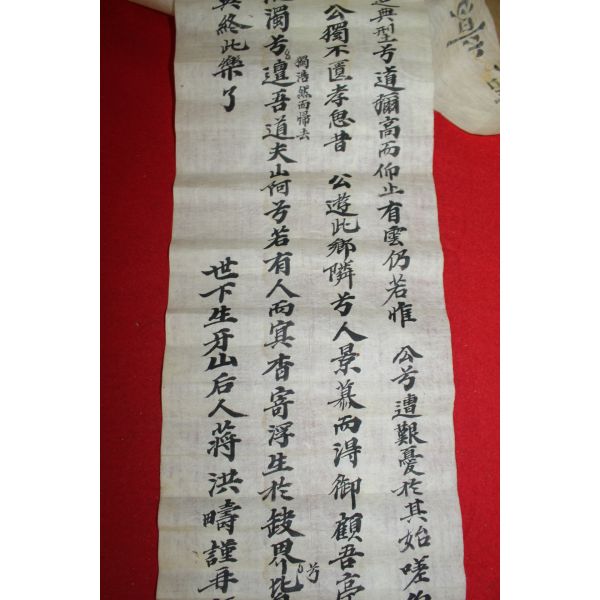 典型兮道彌高而仰止有雲仍若惟 公兮遭艱憂於其始嗟
公獨不匱孝思昔 公遊此鄉隣兮人景慕而得御顧吾亭
濁兮邅吾道夫山阿兮若有人而冥杳寄浮生於
獨浩然而歸去
兮
終此樂了
世下生牙山后人蔣洪疇謹再